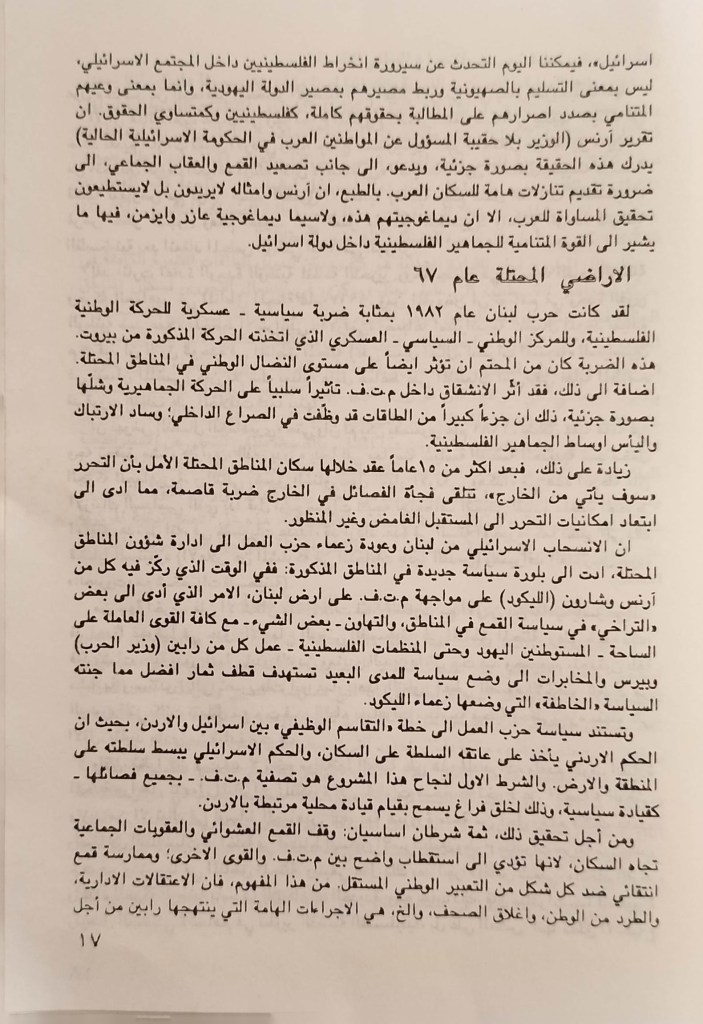 اسرائيل»، فيمكننا اليوم التحدث عن سيرورة انخراط الفلسطينيين داخل المجتمع الاسرائيلي،
ليس بمعنى التسليم بالصهيونية وربط مصيرهم بمصير الدولة اليهودية، وانما بمعنى وعيهم
المتنامي بصدد اصرارهم على المطالبة بحقوقهم كاملة، كفلسطينيين وكمتساوي الحقوق. ان
تقرير آرنس (الوزير بلا حقيبة المسؤول عن المواطنين العرب في الحكومة الاسرائيلية الحالية)
يدرك هذه الحقيقة بصورة جزئية، ويدعو، الى جانب تصعيد القمع والعقاب الجماعي، الى
ضرورة تقديم تنازلات هامة للسكان العرب. بالطبع، ان آرنس وامثاله لايريدون بل لايستطيعون
تحقيق المساواة للعرب، الا ان ديماغوجيتهم هذه، ولاسيما ديماغوجية عازر وايزمن، فيها ما
يشير الى القوة المتنامية للجماهير الفلسطينية داخل دولة اسرائيل.
الاراضي المحتلة عام ٦٧
لقد كانت حرب لبنان عام ١٩٨٢ بمثابة ضربة سياسية ـ عسكرية للحركة الوطنية
الفلسطينية، وللمركز الوطني ـ السياسي ـ العسكري الذي اتخذته الحركة المذكورة من بيروت.
هذه الضربة كان من المحتم ان تؤثر ايضاً على مستوى النضال الوطني في المناطق المحتلة.
اضافة الى ذلك، فقد أثّر الانشقاق داخل م.ت.ف. تأثيراً سلبياً على الحركة الجماهيرية وشلّها
بصورة جزئية، ذلك ان جزءاً كبيراً من الطاقات قد وظّفت في الصراع الداخلي؛ وساد الارتباك
واليأس اوساط الجماهير الفلسطينية.
زيادة على ذلك، فبعد اكثر من ١٥عاماً عقد خلالها سكان المناطق المحتلة الأمل بأن التحرر
«سوف يأتي من الخارج»، تتلقى فجأة الفصائل في الخارج ضربة قاصمة، مما ادى الى
ابتعاد امكانيات التحرر الى المستقبل الغامض وغير المنظور.
ان الانسحاب الاسرائيلي من لبنان وعودة زعماء حزب العمل الى ادارة شؤون المناطق
المحتلة، ادت الى بلورة سياسة جديدة في المناطق المذكورة: ففي الوقت الذي ركّز فيه كل من
آرنس وشارون (الليكود) على مواجهة م.ت.ف. على ارض لبنان، الامر الذي أدى الى بعض
«التراخي» في سياسة القمع في المناطق، والتهاون ـ بعض الشيء ـ مع كافة القوى العاملة على
الساحة ـ المستوطنين اليهود وحتى المنظمات الفلسطينية ـ عمل كل من رابين (وزير الحرب)
وبيرس والمخابرات الى وضع سياسة للمدى البعيد تستهدف قطف ثمار افضل مما جنته
السياسة «الخاطفة» التي وضعها زعماء الليكود.
وتستند سياسة حزب العمل الى خطة «التقاسم الوظيفي» بين اسرائيل والاردن، بحيث ان
الحكم الاردني يأخذ على عاتقه السلطة على السكان، والحكم الاسرائيلي يبسط سلطته على
المنطقة والارض. والشرط الاول لنجاح هذا المشروع هو تصفية م.ت.ف. ـ بجميع فصائلها ـ
كقيادة سياسية، وذلك لخلق فراغ يسمح بقيام قيادة محلية مرتبطة بالاردن.
ومن أجل تحقيق ذلك، ثمة شرطان اساسيان: وقف القمع العشوائي والعقوبات الجماعية
تجاه السكان، لانها تؤدي الى استقطاب واضح بين م.ت.ف. والقوى الاخرى؛ وممارسة قمع
انتقائي ضد كل شكل من التعبير الوطني المستقل. من هذا المفهوم، فان الاعتقالات الادارية،
والطرد من الوطن، واغلاق الصحف، والخ، هي الاجراءات الهامة التي ينتهجها رابين من أجل
١٧